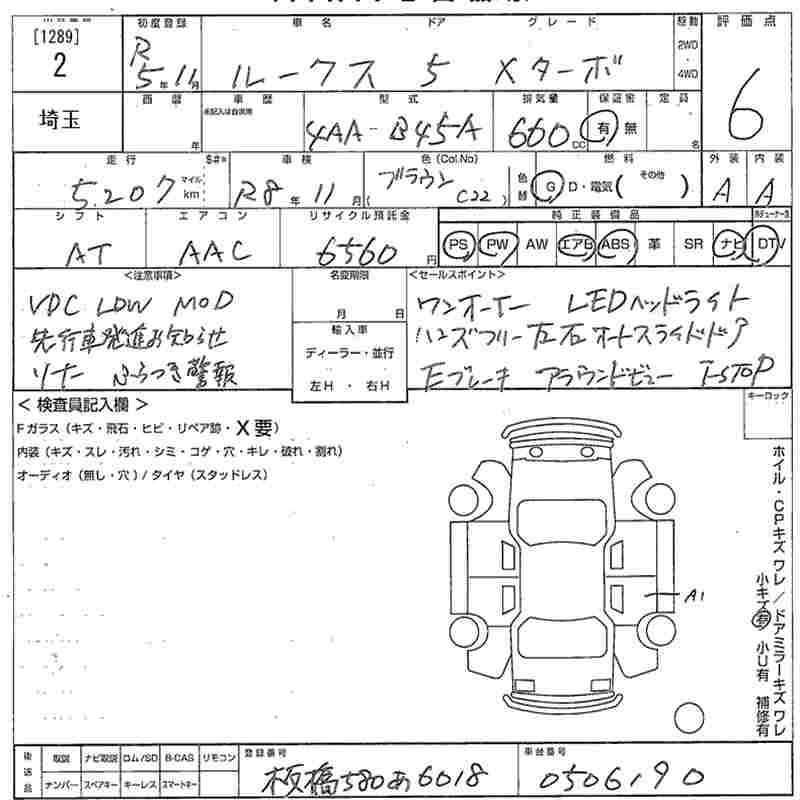 [1289]
2
初度登録 車名 ドア グレード 駆動 評価点
R 5年11月 ルークス 5 Xターボ 2WD・4WD 6
埼玉
西暦 車歴 型式 排気量 保証書 定員
未記入は自家用
年 4AA-B45A 660cc 有・無 名
走行 $#* 車検 色(Col.No) 燃料 外装 内装
5,207 マイル km R8年11月 (ブラウン C22) 色替 G・D・電気( その他 ) A A
シフト エアコン リサイクル預託金 純正装備品
AT AAC 6560円 PS PW AW エアB ABS 革 SR ナビ DTV
<注意事項> 名変期限 <セールスポイント>
VDC LDW MOD 月 日 ワンオーナー LEDヘッドライト
先行車発進お知らせ 輸入車 ハンズフリー左右オートスライドドア
ソナー ふらつき警報 ディーラー・並行 Eブレーキ アラウンドビュー I-STOP
左H・右H
<検査員記入欄> キーロック
Fガラス(キズ・飛石・ヒビ・リペア跡・X要)
内装(キズ・スレ・汚れ・シミ・コゲ・穴・キレ・破れ・割れ)
オーディオ(無し・穴)/タイヤ(スタッドレス)
A1
ホイル・CPキズ ワレ/ドアミラーキズ ワレ
小キズ有 小U有 補修有
後送品 取説 ナビ取説 ロム/SD B-CAS リモコン 登録番号 車台番号
ナンバー スペアキー キーレス スマートキー 板橋580あ6018 0506190